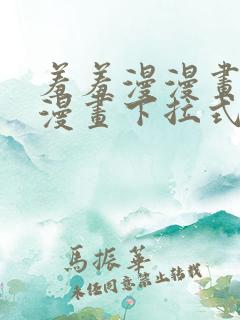 羞羞漫漫畫
漫畫下拉式
馬振華
未任同意禁止转載